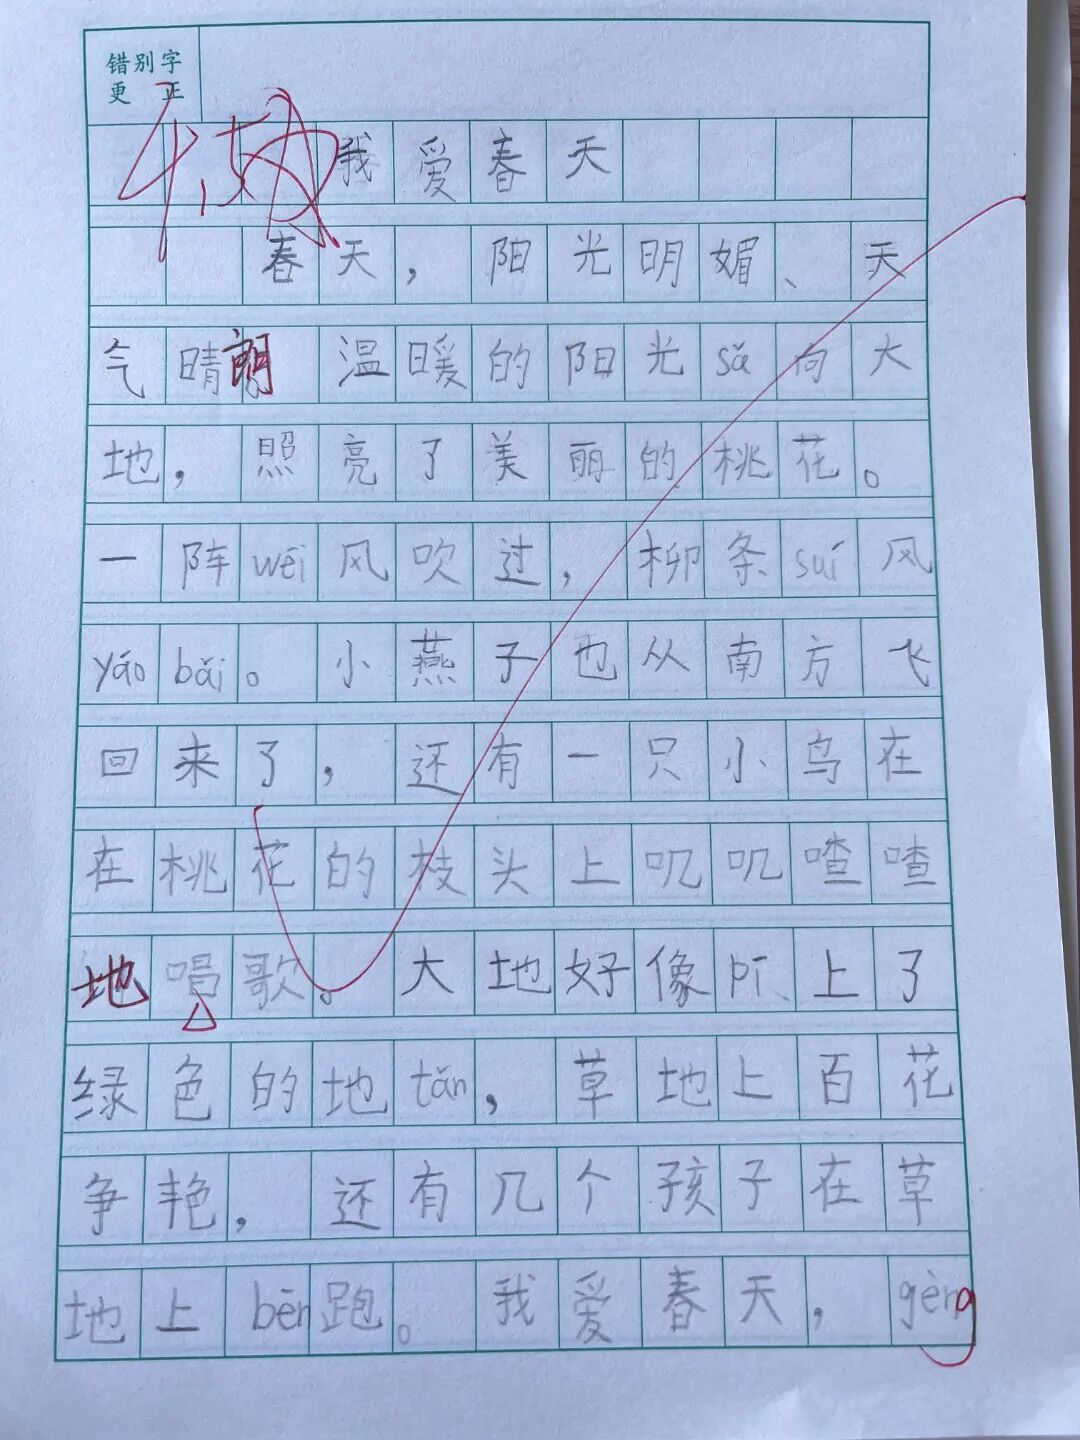 错别字
更 正
我爱春天
春天，阳光明媚、天
气晴朗 温暖的阳光sǎ向大
地，照亮了美丽的桃花。
一阵wēi风吹过，柳条suí风
yáo bǎi。小燕子也从南方飞
回来了，还有一只小鸟在
在桃花的枝头上叽叽喳喳
地唱歌。大地好像pī、上了
绿色的地tǎn，草地上百花
争艳，还有几个孩子在草
地上bēn跑。我爱春天，gèng